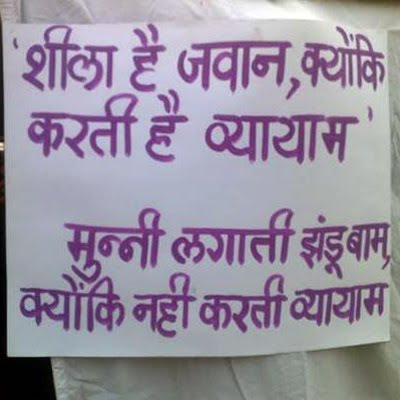 'शीला है जवान, क्योंकि
करती है व्यायाम'
मुन्नी लगाती झंडू बाम,
क्योंकि नही करती व्यायाम